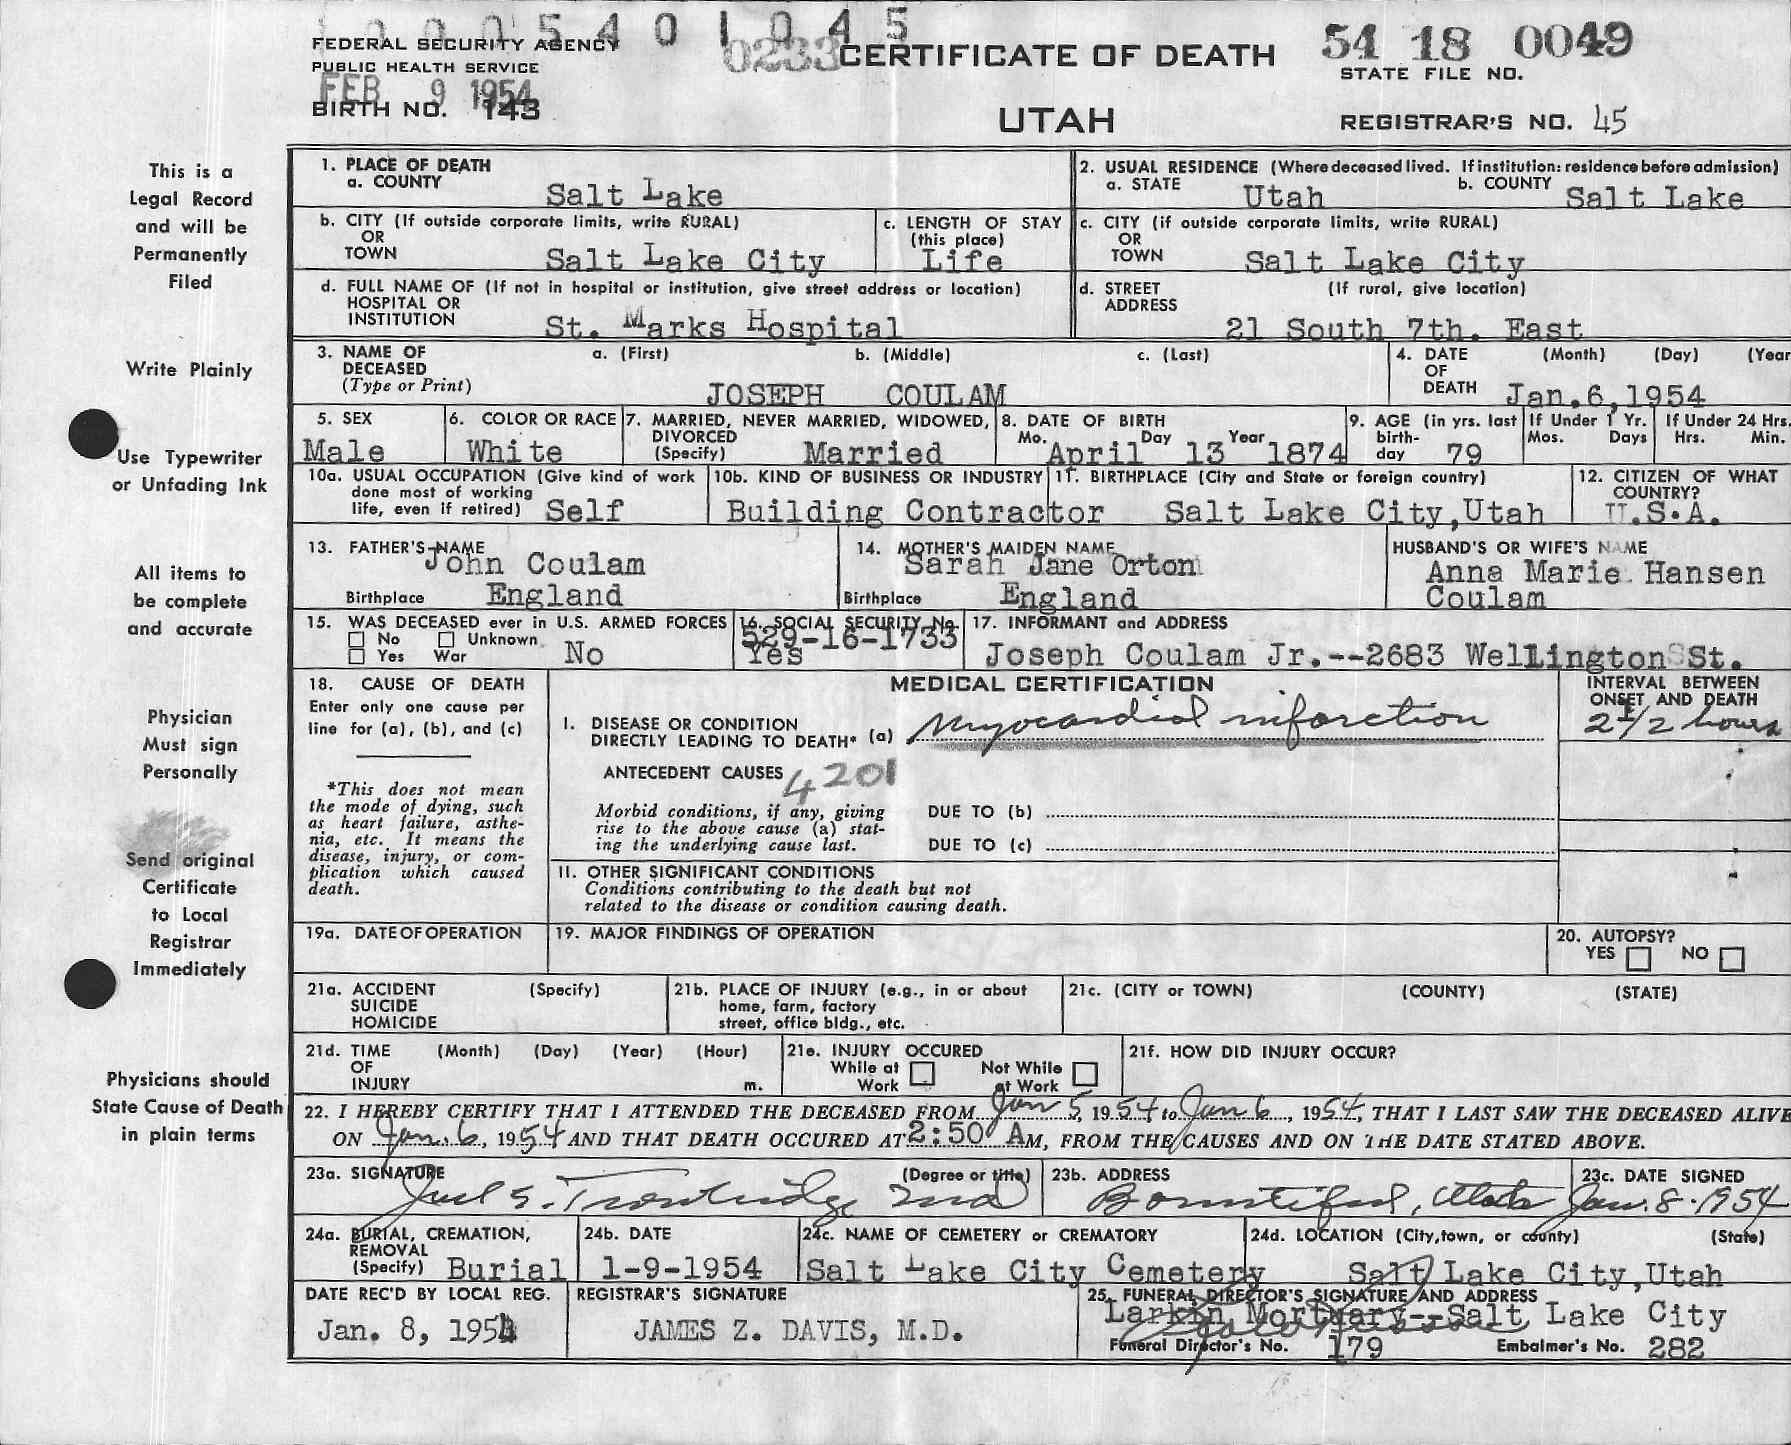 1 0 0 0 5 4 0 1 0 4 5
FEDERAL SECURITY AGENCY
PUBLIC HEALTH SERVICE
FEB 9 1954
BIRTH NO. 143
0233 CERTIFICATE OF DEATH
UTAH
54 18 0049
STATE FILE NO.
REGISTRAR'S NO. 45
This is a
Legal Record
and will be
Permanently
Filed
Write Plainly
Use Typewriter
or Unfading Ink
All items to
be complete
and accurate
Physician
Must sign
Personally
Send original
Certificate
to Local
Registrar
Immediately
Physicians should
State Cause of Death
in plain terms
1. PLACE OF DEATH
a. COUNTY Salt Lake
2. USUAL RESIDENCE (Where deceased lived. If institution: residence before admission)
a. STATE Utah b. COUNTY Salt Lake
b. CITY (If outside corporate limits, write RURAL)
OR
TOWN Salt Lake City
c. LENGTH OF STAY
(this place)
Life
c. CITY (if outside corporate limits, write RURAL)
OR
TOWN Salt Lake City
d. FULL NAME OF (If not in hospital or institution, give street address or location)
HOSPITAL OR
INSTITUTION St. Marks Hospital
d. STREET (If rural, give location)
ADDRESS
21 South 7th. East
3. NAME OF a. (First) b. (Middle) c. (Last)
DECEASED
(Type or Print) JOSEPH COULAM
4. DATE (Month) (Day) (Year
OF
DEATH Jan.6,1954
5. SEX
Male
6. COLOR OR RACE
White
7. MARRIED, NEVER MARRIED, WIDOWED,
DIVORCED
(Specify) Married
8. DATE OF BIRTH
Mo. Day Year
April 13 1874
9. AGE (in yrs. last
birth-
day 79
If Under 1 Yr.
Mos. Days
If Under 24 Hrs.
Hrs. Min.
10a. USUAL OCCUPATION (Give kind of work
done most of working
life, even if retired) Self
10b. KIND OF BUSINESS OR INDUSTRY
Building Contractor
11. BIRTHPLACE (City and State or foreign country)
Salt Lake City,Utah
12. CITIZEN OF WHAT
COUNTRY?
U.S.A.
13. FATHER'S NAME
John Coulam
Birthplace England
14. MOTHER'S MAIDEN NAME
Sarah Jane Orton
Birthplace England
HUSBAND'S OR WIFE'S NAME
Anna Marie Hansen
Coulam
15. WAS DECEASED ever in U.S. ARMED FORCES
No Unknown
Yes War No
16. SOCIAL SECURITY No.
529-16-1733
Yes
17. INFORMANT and ADDRESS
Joseph Coulam Jr.--2683 Wellington St.
18. CAUSE OF DEATH
Enter only one cause per
line for (a), (b), and (c)
*This does not mean
the mode of dying, such
as heart failure, asthe-
nia, etc. It means the
disease, injury, or com-
plication which caused
death.
MEDICAL CERTIFICATION
INTERVAL BETWEEN
ONSET AND DEATH
I. DISEASE OR CONDITION
DIRECTLY LEADING TO DEATH* (a) Myocardial infarction
2 1/2 hours
ANTECEDENT CAUSES 4201
Morbid conditions, if any, giving
rise to the above cause (a) stat-
ing the underlying cause last.
DUE TO (b)
DUE TO (c)
II. OTHER SIGNIFICANT CONDITIONS
Conditions contributing to the death but not
related to the disease or condition causing death.
19a. DATE OF OPERATION
19. MAJOR FINDINGS OF OPERATION
20. AUTOPSY?
YES NO
21a. ACCIDENT (Specify)
SUICIDE
HOMICIDE
21b. PLACE OF INJURY (e.g., in or about
home, farm, factory
street, office bldg., etc.
21c. (CITY or TOWN) (COUNTY) (STATE)
21d. TIME (Month) (Day) (Year) (Hour)
OF
INJURY m.
21e. INJURY OCCURED
While at Not While
Work at Work
21f. HOW DID INJURY OCCUR?
22. I HEREBY CERTIFY THAT I ATTENDED THE DECEASED FROM Jan 5, 1954 to Jan 6, 1954, THAT I LAST SAW THE DECEASED ALIVE
ON Jan. 6, 1954 AND THAT DEATH OCCURED AT 2:50 AM, FROM THE CAUSES AND ON THE DATE STATED ABOVE.
23a. SIGNATURE (Degree or title)
23b. ADDRESS
Bountiful, Utah
23c. DATE SIGNED
Jan. 8. 1954
24a. BURIAL, CREMATION,
REMOVAL
(Specify) Burial
24b. DATE
1-9-1954
24c. NAME OF CEMETERY or CREMATORY
Salt Lake City Cemetery
24d. LOCATION (City, town, or county) (State)
Salt Lake City,Utah
DATE REC'D BY LOCAL REG.
Jan. 8, 1954
REGISTRAR'S SIGNATURE
JAMES Z. DAVIS, M.D.
25. FUNERAL DIRECTOR'S SIGNATURE AND ADDRESS
Larkin Mortuary--Salt Lake City
Funeral Director's No. 179 Embalmer's No. 282